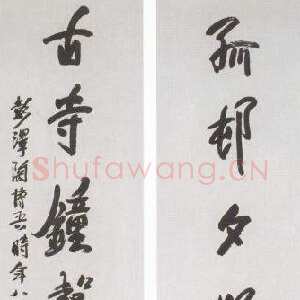 孤邨夕
古寺鐘
彭澤陶博吾時年八
Shufawang.CN